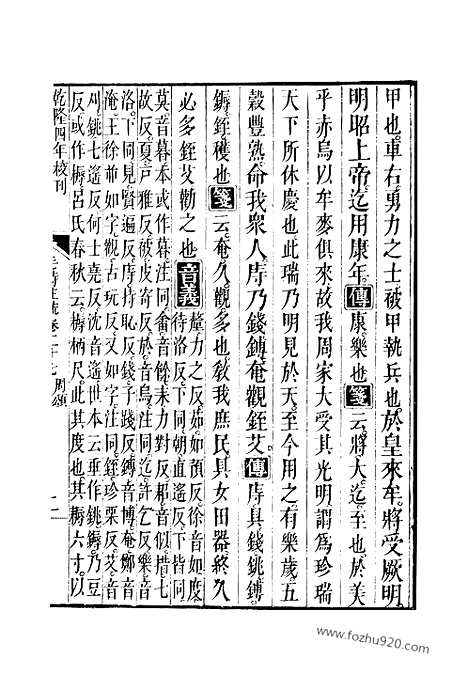 甲也車右勇力之士被甲執兵也於皇來牟將受厥明
明昭上帝迄用康年傳康樂也箋云將大迄至也於美
乎赤烏以牟麥俱來故我周家大受其光明謂爲珍瑞
天下所休慶也此瑞乃明見於天至今用之有樂歲五
穀豐熟命我衆人庤乃錢鎛奄觀銍艾傳庤具錢銚鎛
鎒銍穫也箋云奄久觀多也敎我庶民具女田器終久
必多銍艾勸之也音義釐力之反如如預反徐音如度
待洛反下同朝直遙反下皆同
莫音暮本或作暮注同畬音餘耒力對反耜音似措七
故反夏戸雅反被皮寄反於音烏注同迄許乞反樂音
洛下同見賢遍反庤持恥反錢子踐反鎛音博奄鄭音
淹王徐並如字觀古玩反又如字注同銍珍栗反艾音
刈銚七遙反何士堯反沈音遙世本云垂作銚鎒乃豆
反或作耨呂氏春秋云耨柄尺此其度也其耨六寸以
乾隆四年校刊
毛詩注疏卷二十七 周頌
www.fozhu920.com